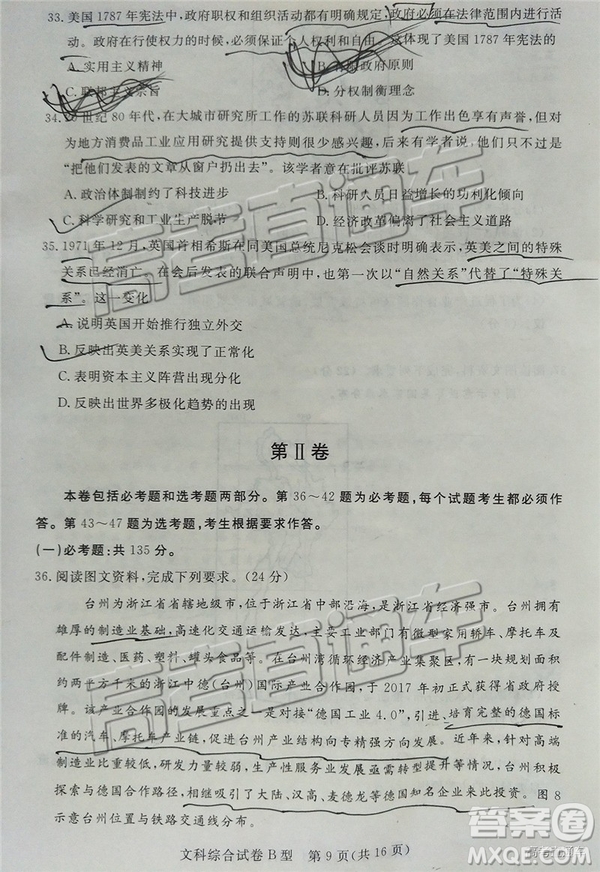 33. 美国 1787 年宪法中,政府职权和组织活动都有明确规定,政府必须在法律范围内进行活
动。政府在行使权力的时候,必须保证个人权利和自由。这体现了美国 1787 年宪法的
A. 实用主义精神
政府原则
C. 联邦主义宗旨
D. 分权制衡理念
34. 世纪 80 年代,在大城市研究所工作的苏联科研人员因为工作出色享有声誉,但对
为地方消费品工业应用研究提供支持则很少感兴趣,后来有学者说,他们只不过是
“把他们发表的文章从窗户扔出去”。该学者意在批评苏联
A. 政治体制制约了科技进步
B. 科研人员日益增长的功利化倾向
C. 科学研究和工业生产脱节
D. 经济改革偏离了社会主义道路
35. 1971 年 12 月,英国首相希斯在同美国总统尼克松会谈时明确表示,英美之间的特殊
关系已经消亡,在会后发表的联合声明中,也第一次以“自然关系”代替了“特殊关
系”。这一变化
A. 说明英国开始推行独立外交
B. 反映出英美关系实现了正常化
C. 表明资本主义阵营出现分化
D. 反映出世界多极化趋势的出现
第Ⅱ卷
本卷包括必考题和选考题两部分。第 36～42 题为必考题,每个试题考生都必须作
答。第 43～47 题为选考题,考生根据要求作答。
(一)必考题:共 135 分。
36. 阅读图文资料,完成下列要求。(24 分)
台州为浙江省省辖地级市,位于浙江省中部沿海,是浙江省经济强市。台州拥有
雄厚的制造业基础,高速化交通运输发达,主要工业部门有微型家用轿车、摩托车及
配件制造、医药、塑料、罐头食品等。在台州湾循环经济产业集聚区,有一片规划约
两平方千米的浙江中德(台州)国际产业合作园,于 2017 年初正式获得省政府授
牌。该产业合作园的发展重点之一是对接“德国工业 4.0”,引进、培育完整的德国标
准的汽车、摩托车产业链,促进台州产业结构向专精特强方向发展。近年来,针对高端
制造业发展相对滞后、生产性服务业发展亟需转型提升等情况,台州积极
探索与德国合作路径,相继吸引了大陆、汉高、麦德龙等德国知名企业来此投资。图 8
示意台州产业园位置与铁路交通线分布。
文科综合试卷 B 型 第 9 页(共 16 页)
高考直通车
高考直通车
答案圈